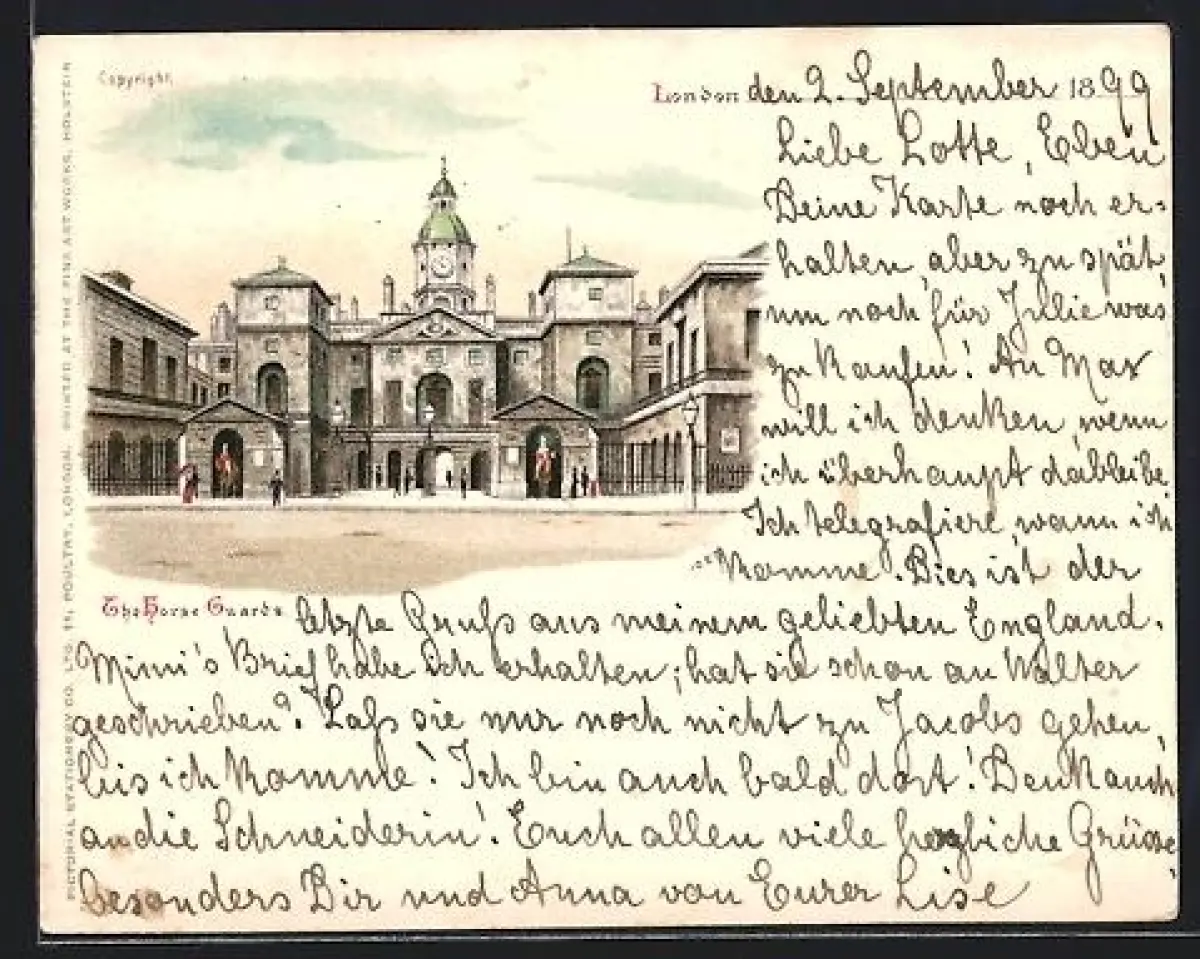 Copyright.
London den 2. September 1899
Liebe Lotte, Eben
Deine Karte noch er=
halten, aber zu spät,
um noch für Julie was
zu kaufen! An Max
will ich denken, wenn
ich überhaupt dableibe.
Ich telegrafiere, wann ich
komme. Dies ist der
The Horse Guards letzte Gruß aus meinem geliebten England.
Mimi's Brief habe ich erhalten; hat sie schon an Walter
geschrieben? Laß sie nur noch nicht zu Jacobs gehen,
bis ich komme! Ich bin auch bald dort! Denk auch
an die Schneiderin! Euch allen viele herzliche Grüsse,
besonders Dir und Anna von Eurer Lise
PICTORIAL STATIONERY CO. LTD. POULTRY, LONDON. PRINTED AT THE FINE ART WORKS, HOLSTEIN